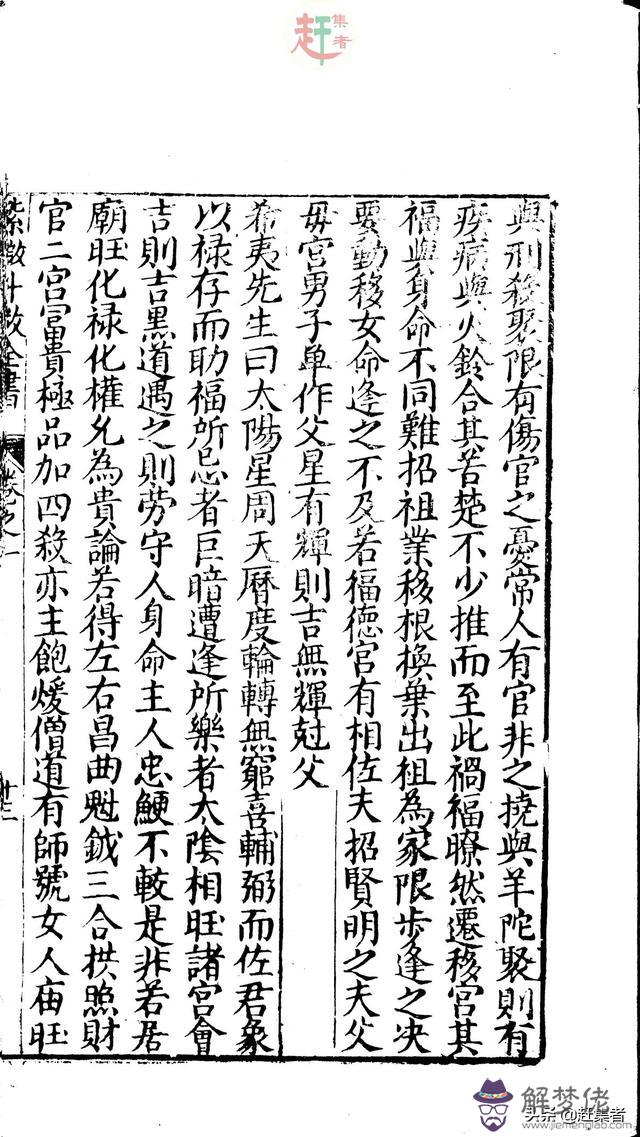 赶集者
與刑殺聚限有傷官之憂常人有官非之撓與羊陀聚則有
疾病與火鈴合其苦楚不少推而至此禍福瞭然遷移宮其
福與身命不同難招祖業移根換葉出祖為家限步逢之决
要動移女命逢之不及若福德宮有相佐夫招賢明之夫父
毋宮男子单作父星有輝則吉無輝尅父
希夷先生曰太陽星周天曆度輪轉無窮喜輔弼而佐君象
以禄存而助福所忌者巨暗遭逢所樂者太陰相旺諸宮會
吉則吉黑道遇之則劳守人身命主人忠鯁不較是非若居
廟旺化禄化權允為貴論若得左右昌曲魁鉞三合拱照財
官二宮富貴極品加四殺亦主飽煖僧道有師號女人庙旺
紫微斗数全書 卷之一 十二
解梦佬
头条@赶集者
www.jiemenglao.com